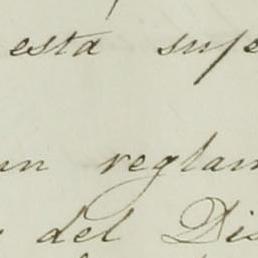 esta supe
un reglam
del Dis